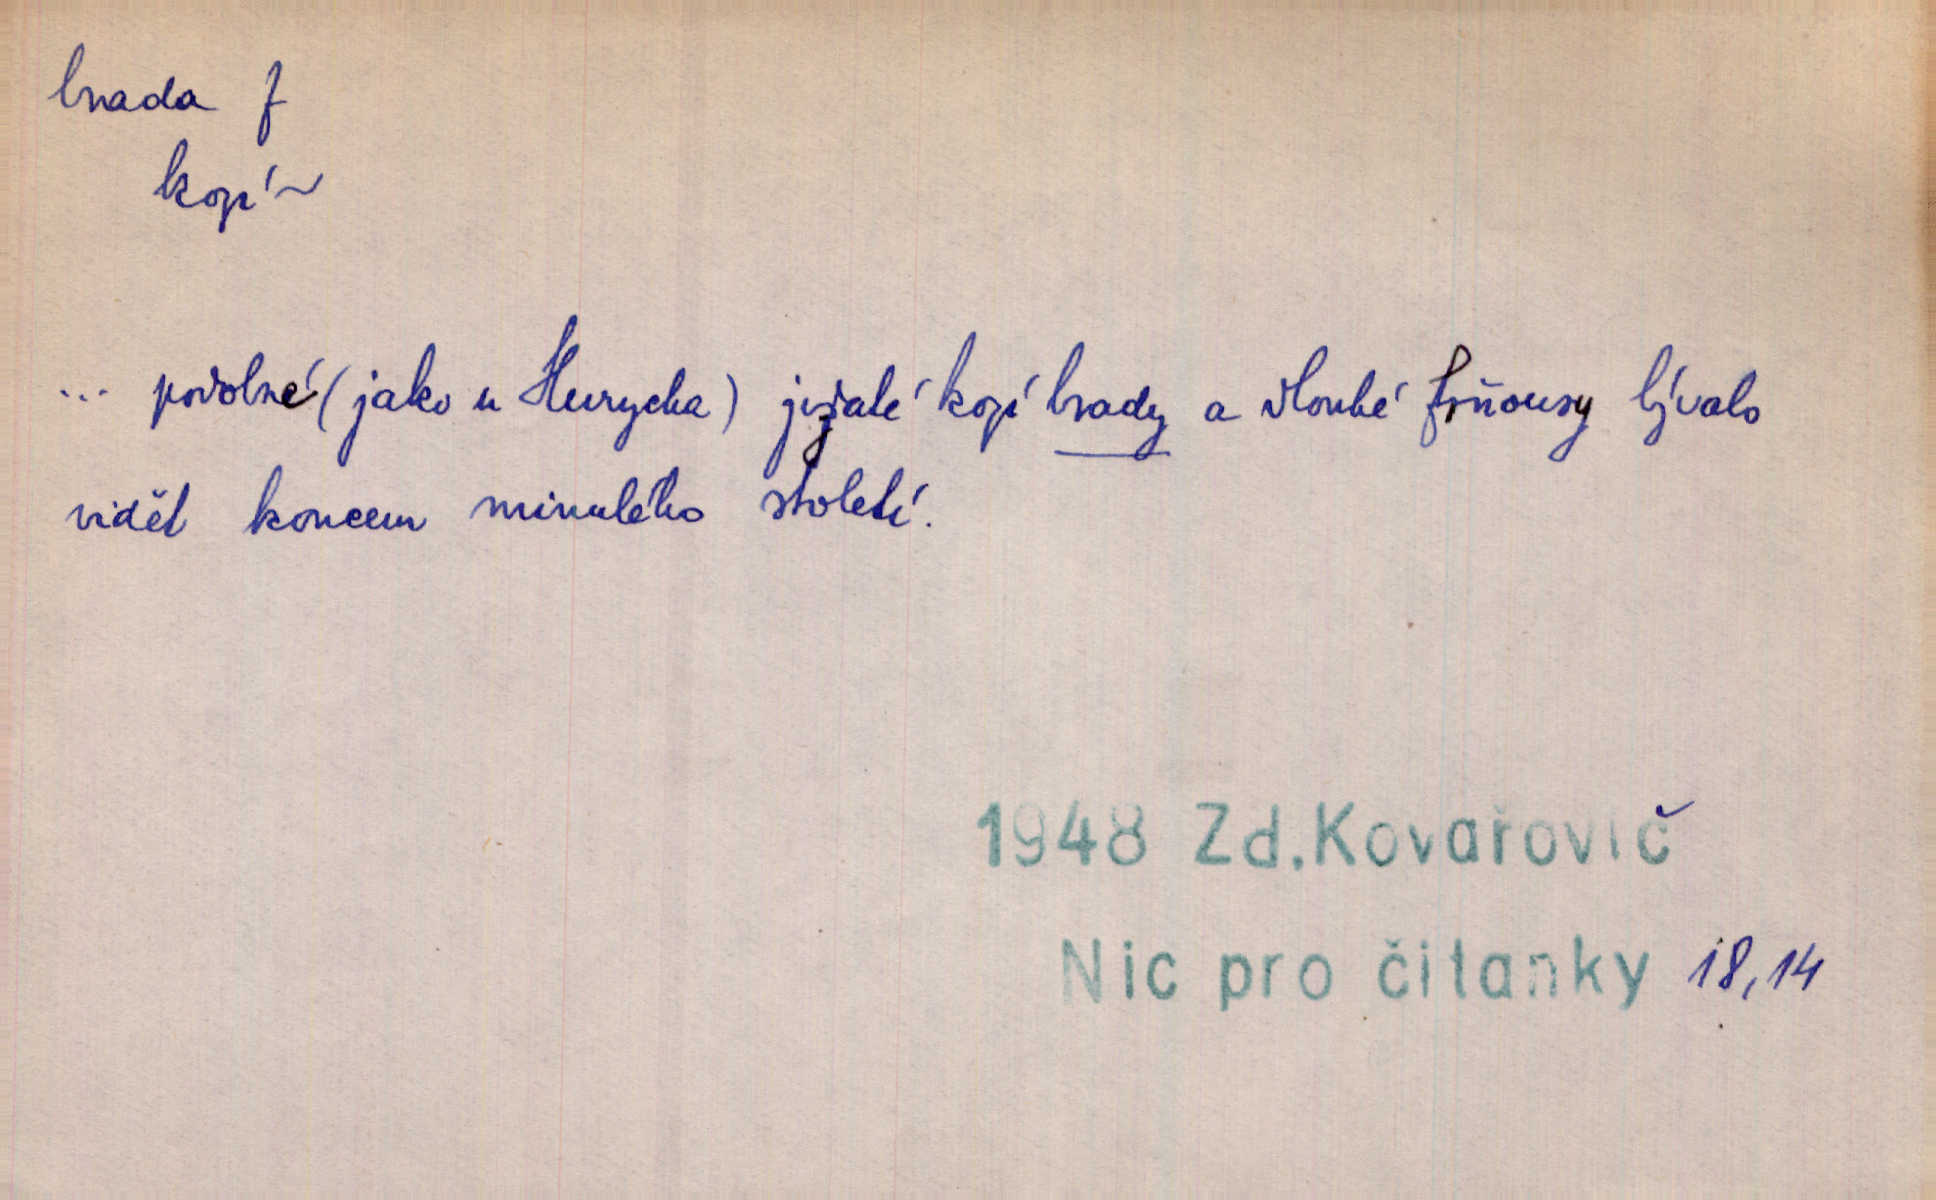 brada f
kopí ~
... podobné (jako u Hurycha) ježaté kopí brady a dlouhé frňousy bývalo
vidět koncem minulého století.
1948 Zd.Kovařovič
Nic pro čitanky 18,14